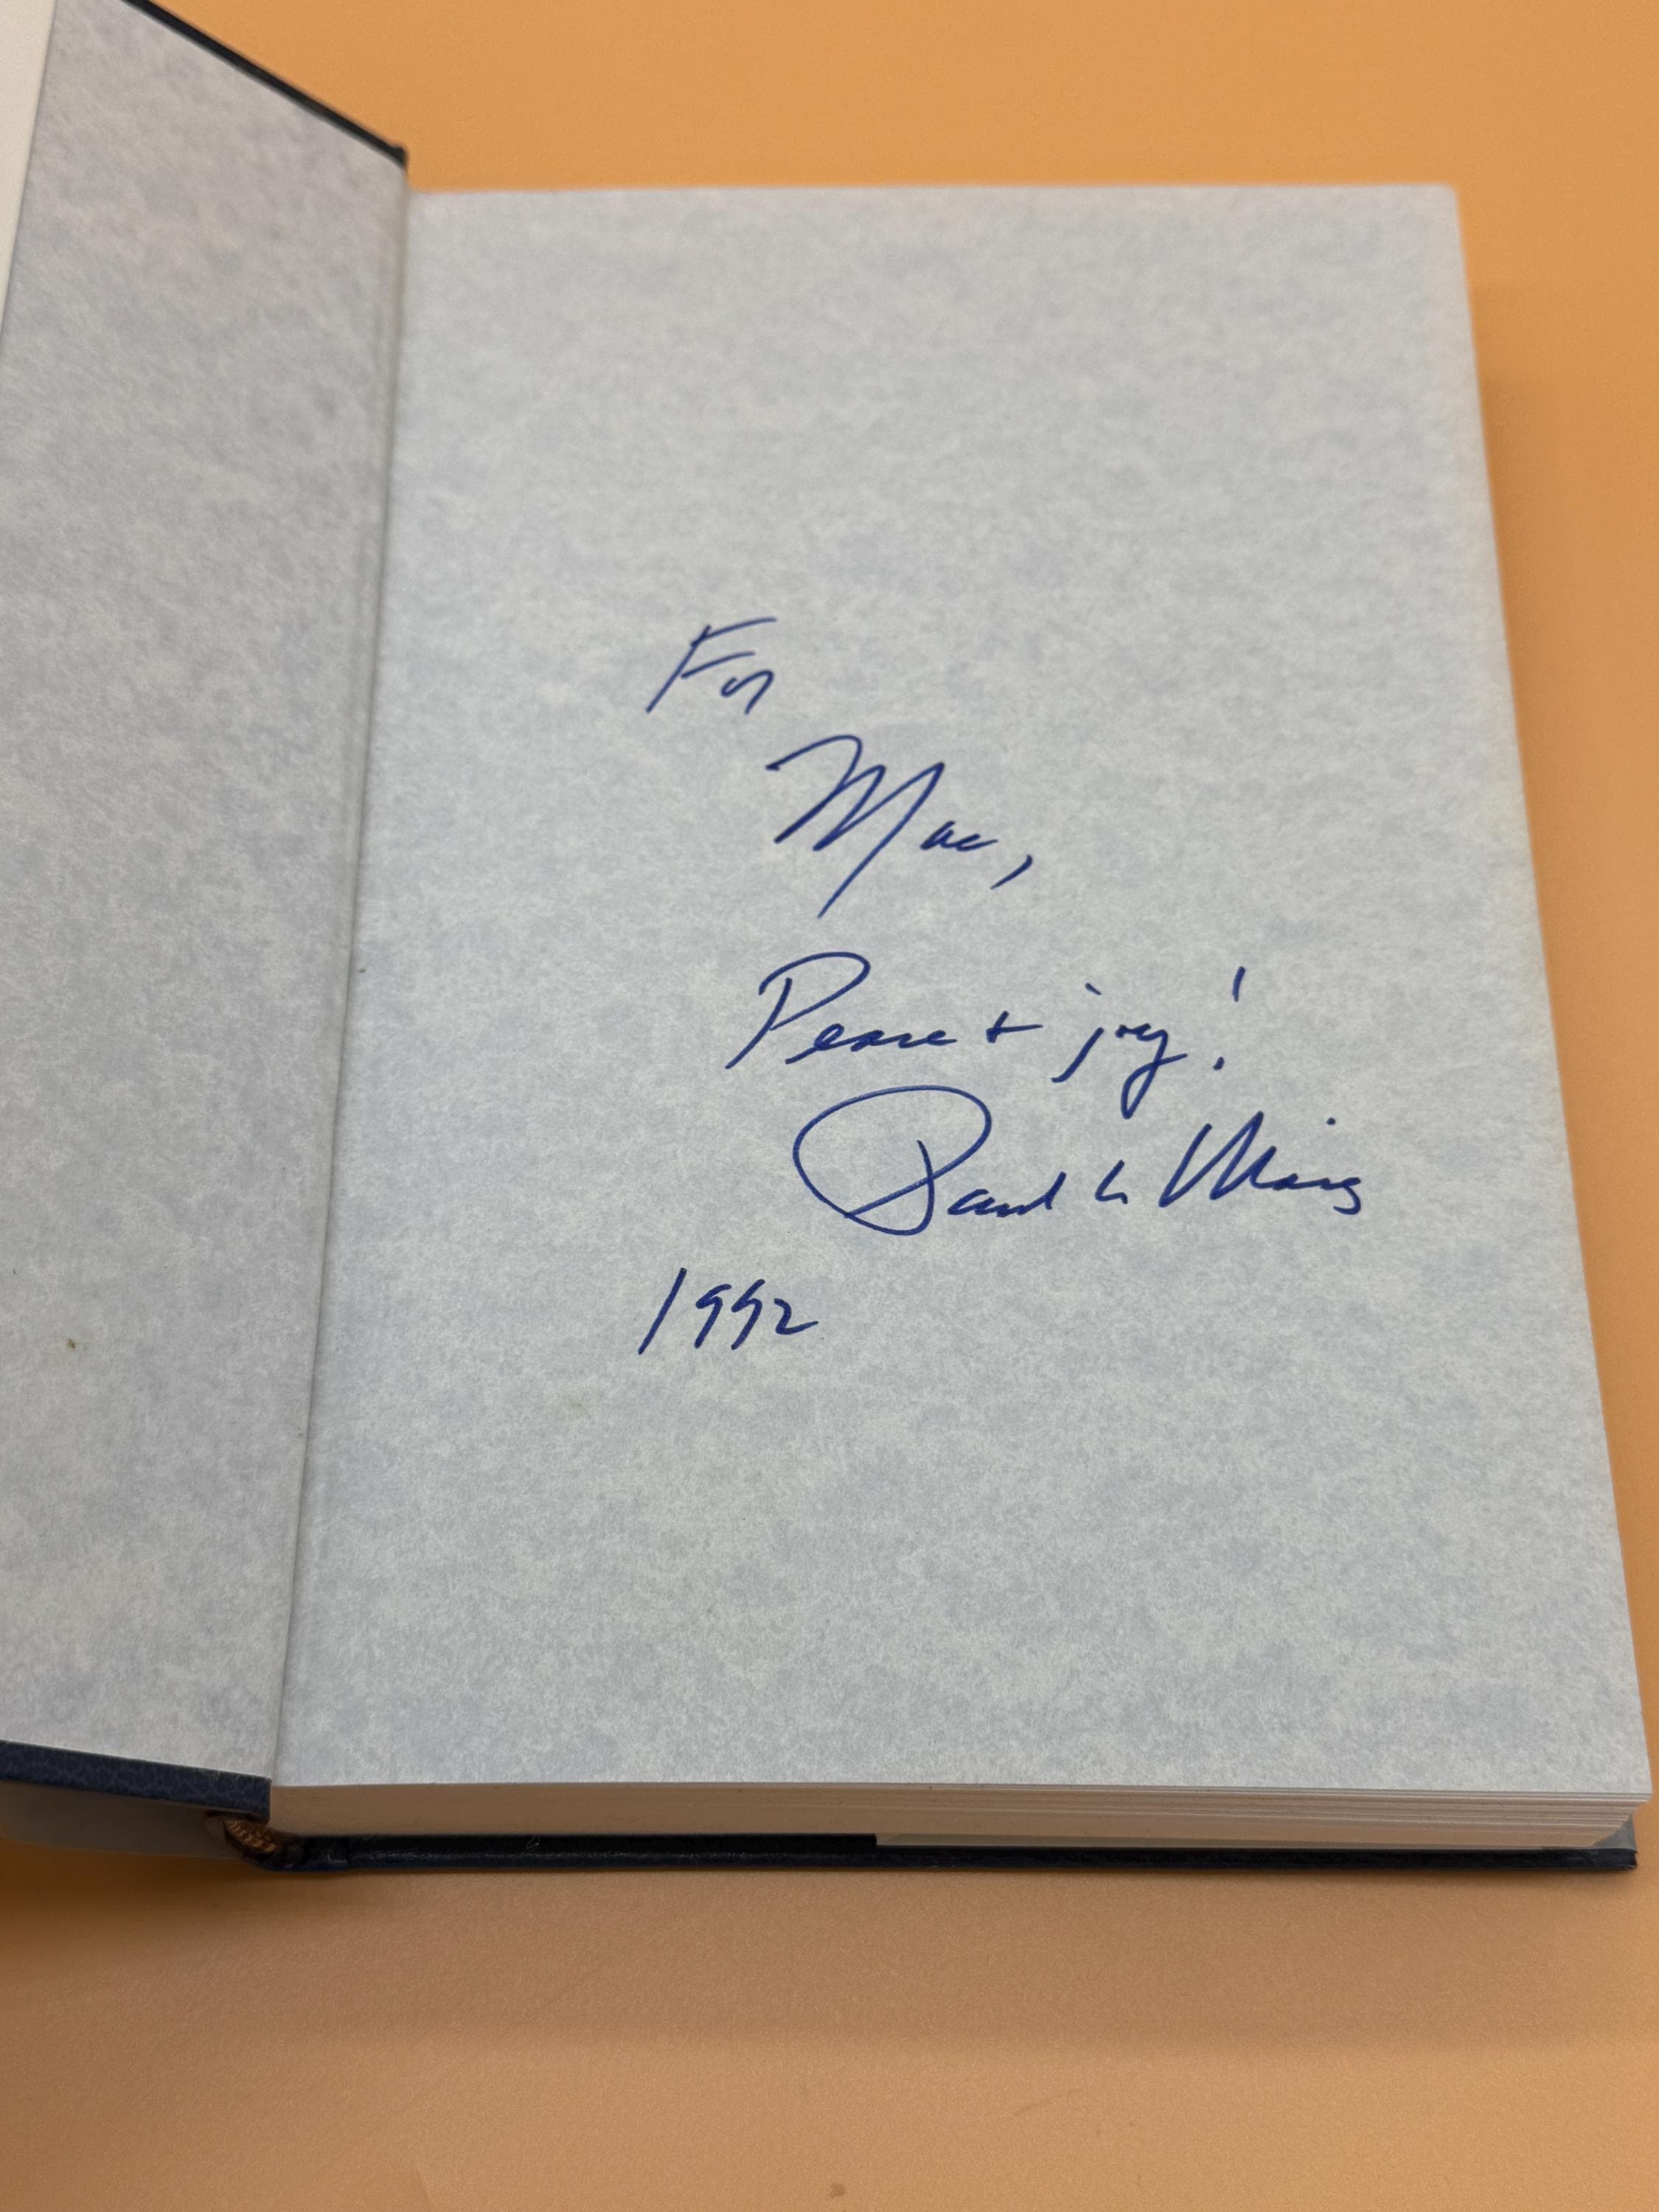 For
Mac,
Peace + joy!
Paul L Maier
1992